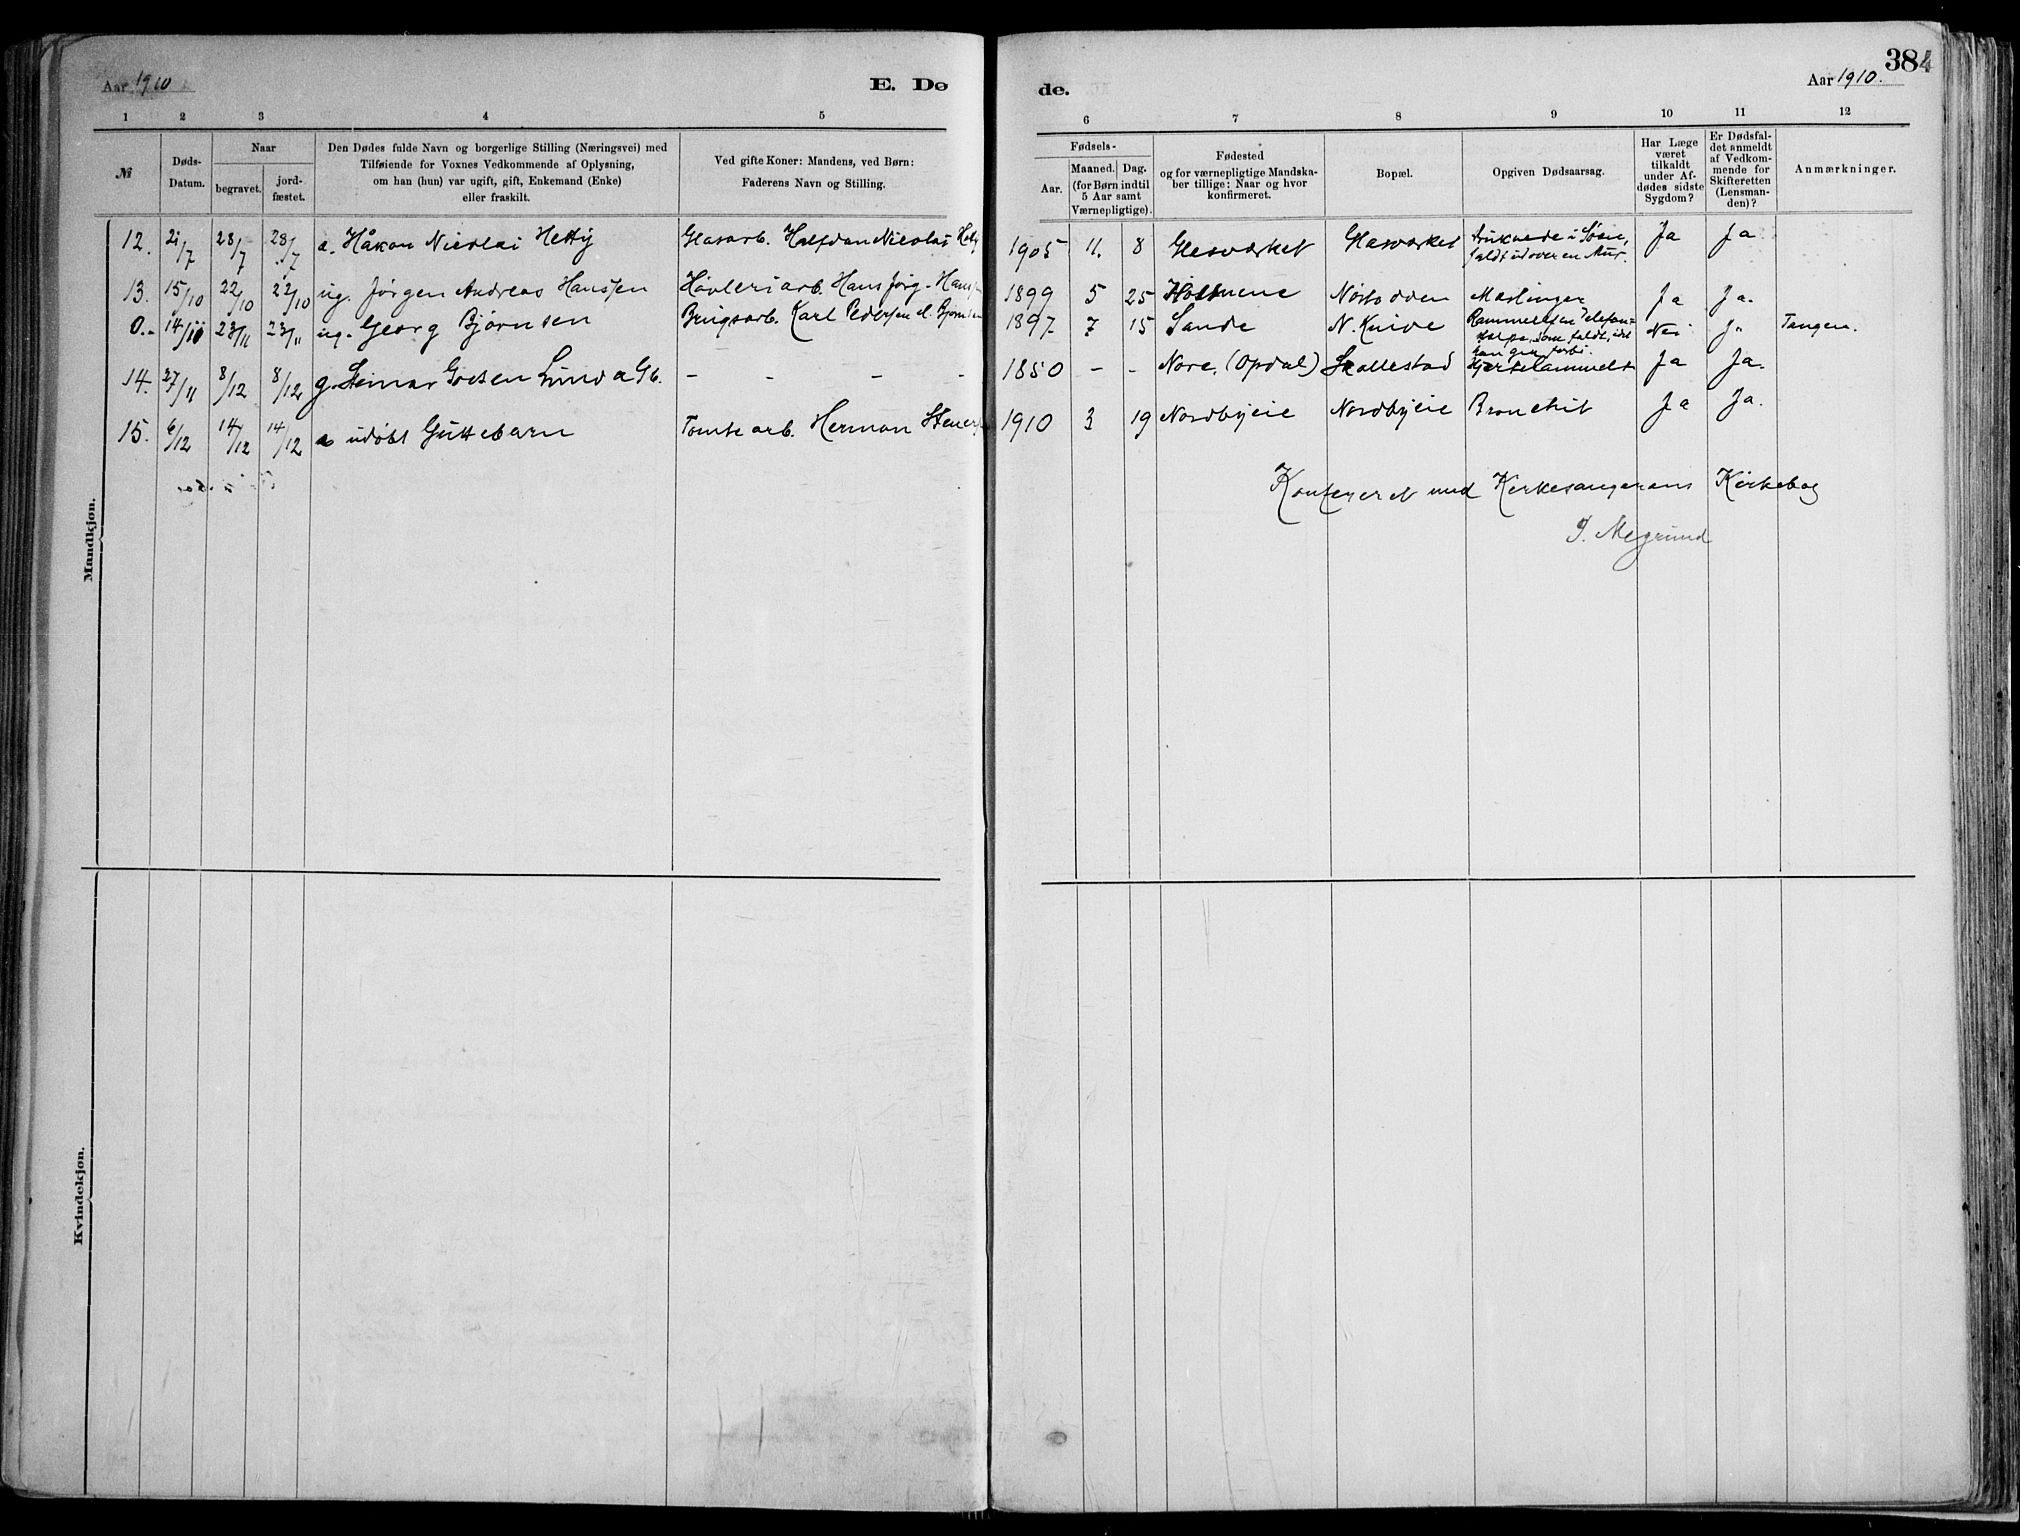 384
Aar 1910
E. Dø
de.
Aar 1910.
1 2 3 4 5
6 7 8 9 10 11 12
№
Døds-
Datum.
Naar
begravet.
jord-
fæstet.
Den Dødes fulde Navn og borgerlige Stilling (Næringsvei) med
Tilføiende for Voxnes Vedkommende af Oplysning,
om han (hun) var ugift, gift, Enkemand (Enke)
eller fraskilt.
Ved gifte Koner: Mandens, ved Børn:
Faderens Navn og Stilling.
Fødsels-
Aar.
Maaned. Dag.
(for Børn indtil
5 Aar samt
Værnepligtige).
Fødested
og for værnepligtige Mandska-
ber tillige: Naar og hvor
konfirmeret.
Bopæl.
Opgiven Dødsaarsag.
Har Læge
været
tilkaldt
under Af-
dødes sidste
Sygdom?
Er Dødsfal-
det anmeldt
af Vedkom-
mende for
Skifteretten
(Lensman-
den)?
Anmærkninger.
Mandkjøn.
12. 21/7 28/7 28/7 a. Håkon Nicolai Hetty Glasarb. Halfdan Nicolas 1905 11. 8 Glasværket Glasværket druknede i Søen, Ja Ja
faldt udover en Mur.
13. 15/10 22/10 22/10 ug. Jørgen Andreas Hanssen Høvleriarb. Hans Jørg. 1899 5 25 Nøstodden Ja Ja.
0. 14/11 23/11 23/11 ug. Georg Bjørnsen Brugsarb. Karl Pedersen 1897 7 15 Sande N. Knive Rammet af en Telefon- Nei J" Tangen.
stolpe, som faldt, idet
han gik forbi.
14. 27/11 8/12 8/12 g. Steinar Lund a Gb. - - - - 1850 - - Nore, (Opdal) Skallestad Hjertelammelse Ja Ja.
15. 6/12 14/12 14/12 a udøbt Guttebarn Tomtearb. Herman 1910 3 19 Nordbyeie Nordbyeie Bronchit Ja Ja.
Konfereret med Kirkesangerens Kirkebog
J. Megrund
Kvindekjøn.